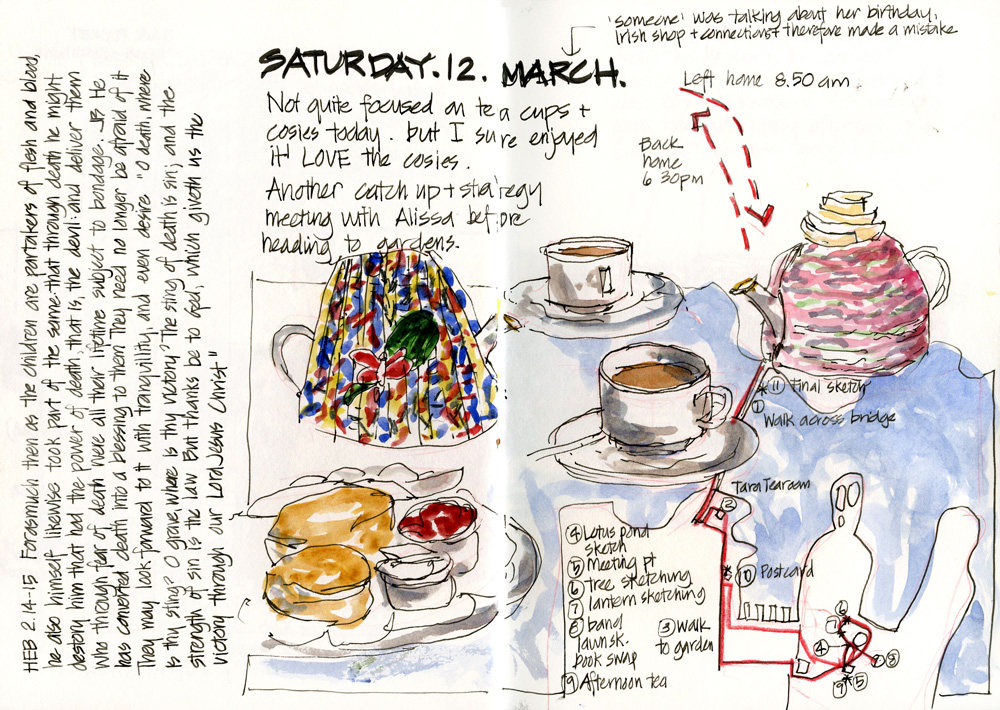 'someone' was talking about her birthday,
Irish shop + connections + therefore made a mistake
SATURDAY.12. MARCH.
Left home 8.50 am
Not quite focused on tea cups +
cosies today. but I sure enjoyed
it! LOVE the cosies.
Another catch up + strategy
meeting with Alissa before
heading to gardens.
Back
home
6 30pm
HEB 2.14-15 Forasmuch then as the children are partakers of flesh and blood,
he also himself likewise took part of the same: that through death he might
destroy him that had the power of death, that is, the devil: and deliver them
who through fear of death were all their lifetime subject to bondage. He
has converted death into a blessing to them They need no longer be afraid of it
They may look forward to it with tranquillity, and even desire "O death, where
is thy sting? O grave, where is thy victory? The sting of death is sin; and the
strength of sin is the law But thanks be to God, which giveth us the
victory through our Lord Jesus Christ"
* 11 final sketch
1
Walk across bridge
Tara Tearoom
2
* 10 Postcard
4 Lotus pond
sketch
5 Meeting pt
6 tree sketching
7 lantern sketching
8 band
lawn sk.
book swap
9 Afternoon tea
3 walk
to garden
6
7
4
7 8
9 5